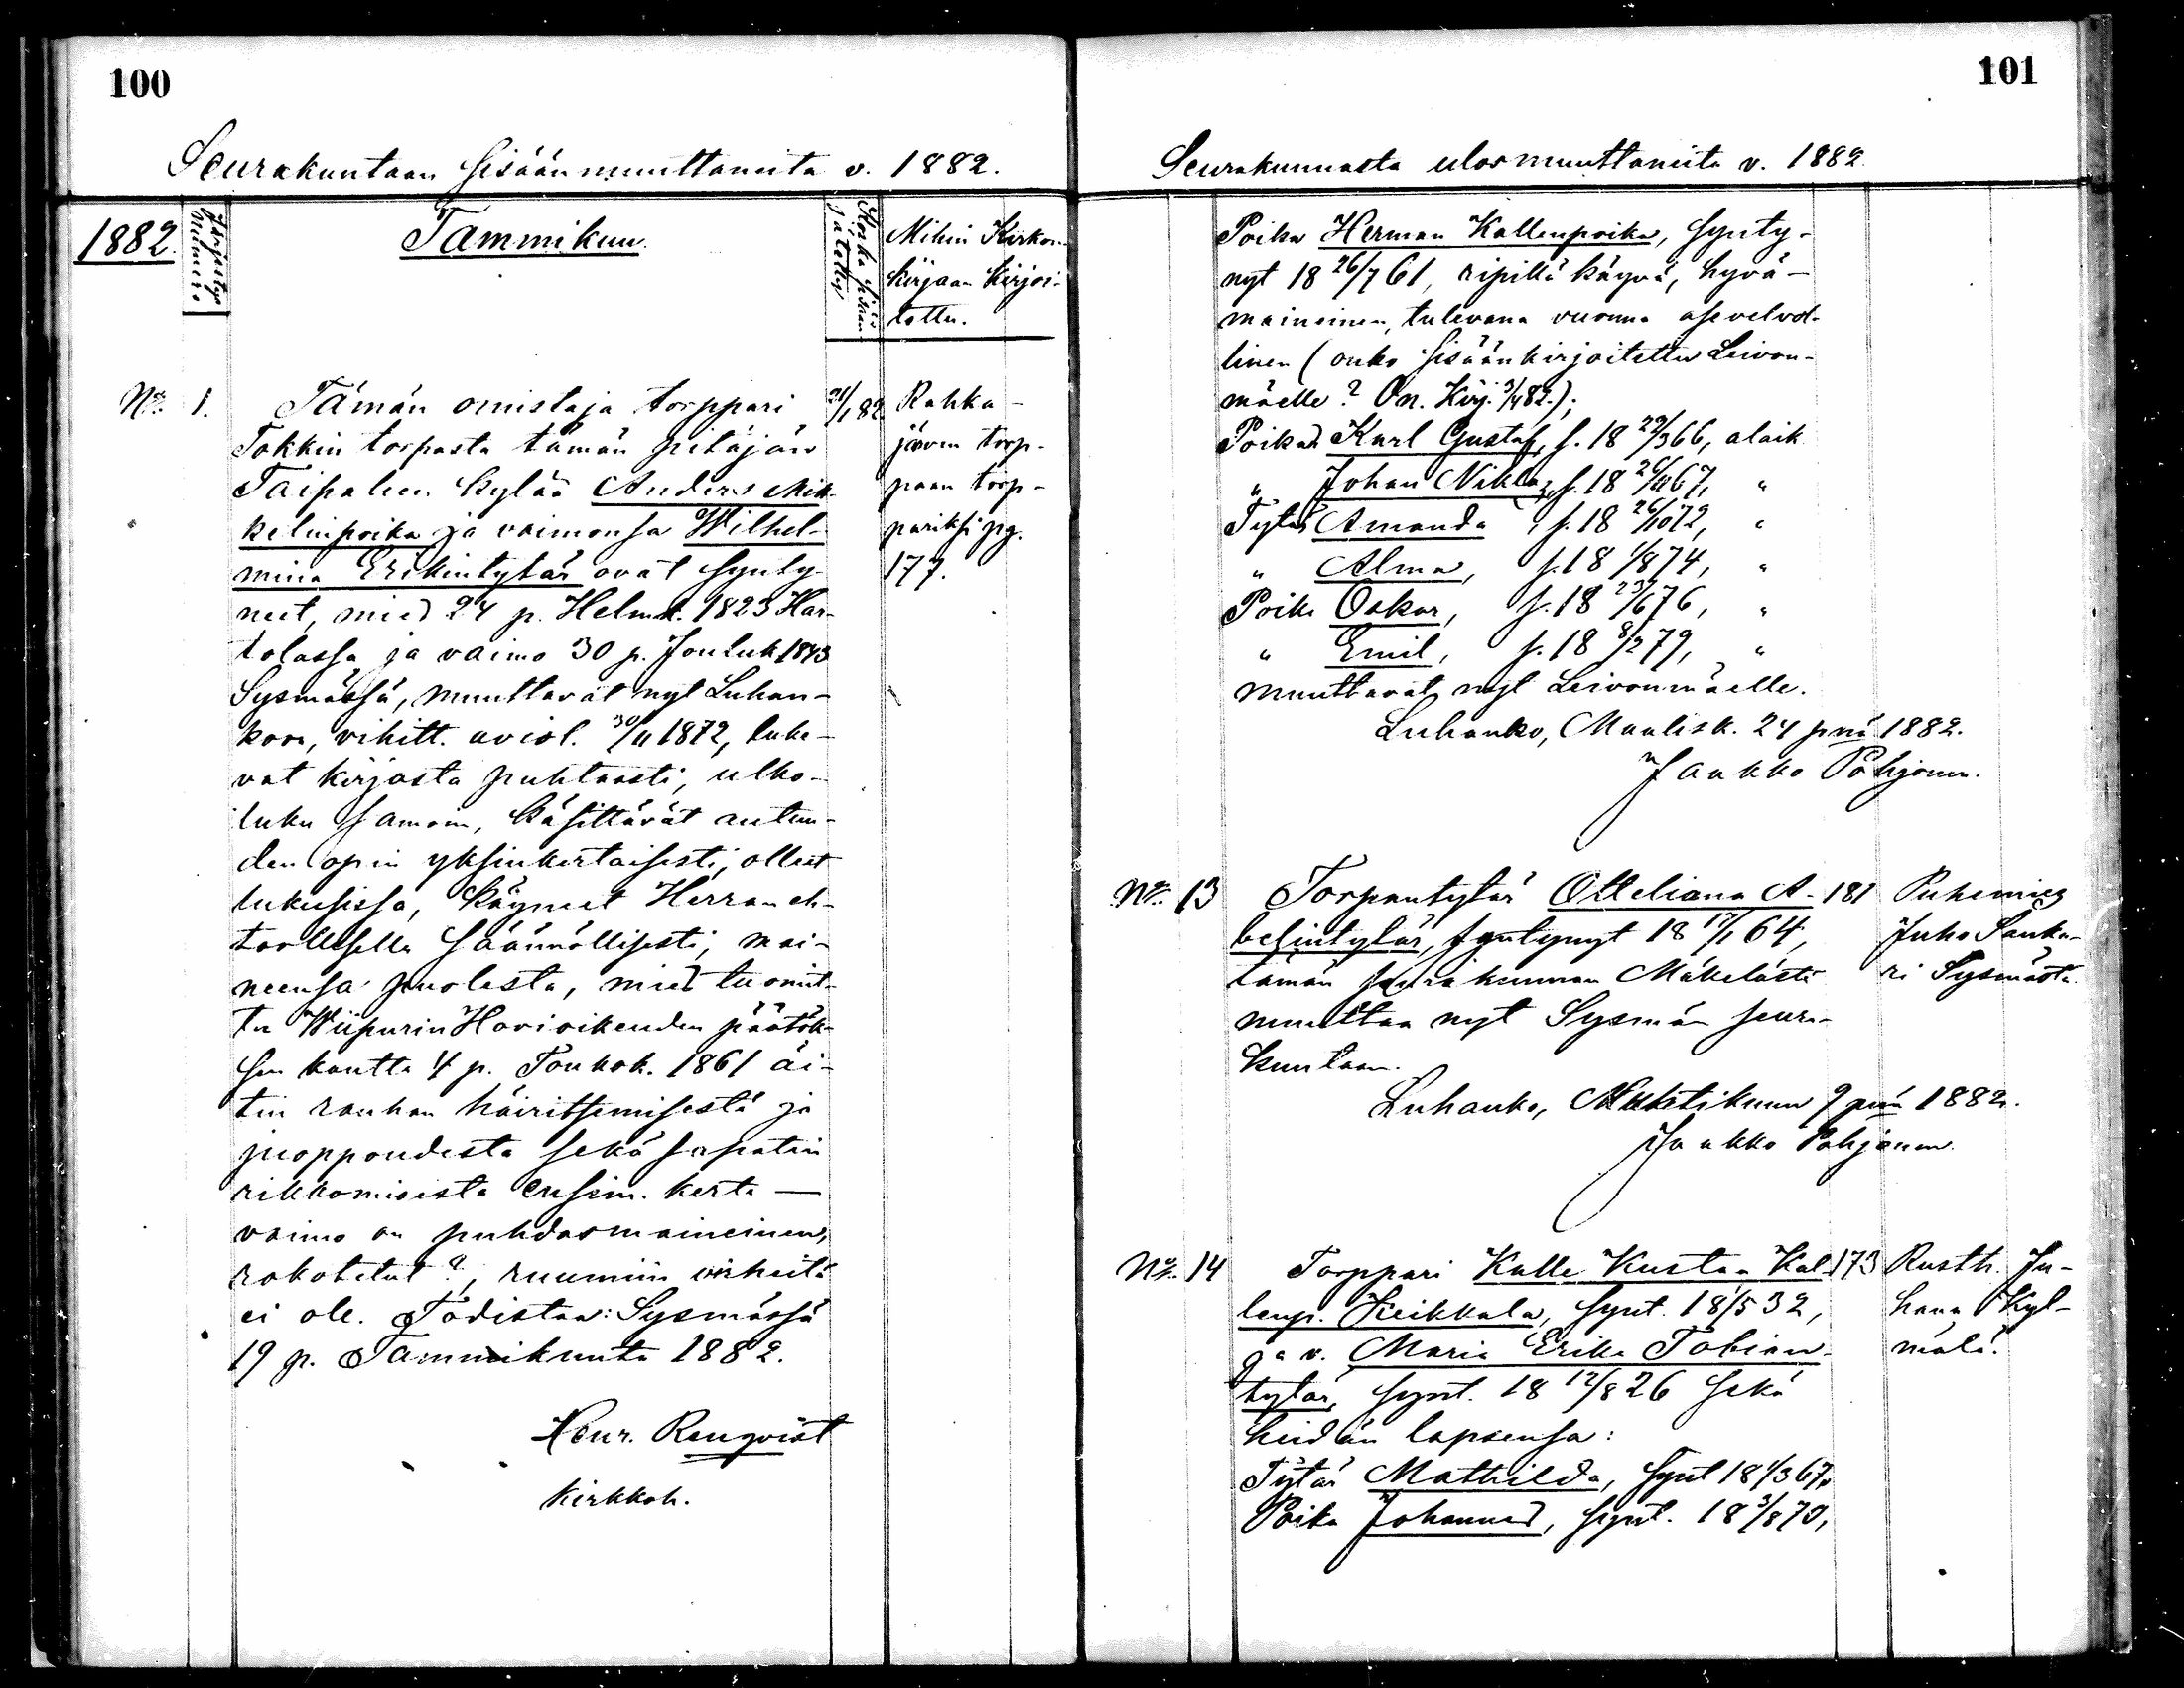 100
Seurakuntaan sisäänmuuttaneita v. 1882.
1882.
Järjestys
Numero
Tammikuu.
Koska sisään
jätetty
Mihin Kirkon-
kirjaan kirjoi-
tettu.
No. 1.
Tämän omistaja torppari
Tokkin torpasta tämän pitäjän
Taipaleen kylää Anders Mik-
kelinpoika ja vaimonsa Wilhel-
mina Erikintytär ovat synty-
neet, mies 24 p. Helmik. 1823 Har-
tolassa ja vaimo 30 p. Jouluk 1843
Sysmässä, muuttavat nyt Luhan-
koon, vihitt. aviol. 30/11 1872, luke-
vat kirjasta puhtaasti, ulko-
luku samoin, käsittävät autuu-
den opin yksinkertaisesti, olleet
lukusissa, käyneet Herran eh-
toollisella säännöllisesti, mai-
neensa puolesta, mies tuomit-
tu Wiipurin Hovioikeuden päätök-
sen kautta 4 p. Toukok. 1861 äi-
tin rauhan häiritsemisestä ja
juoppoudesta sekä sapatin
rikkomisesta ensim. kerta —
vaimo on puhdasmaineinen,
rokotetut?, ruumiin virheitä
ei ole. Todistaa: Sysmässä
19 p. Tammikuuta 1882.
Henr. Renqvist
kirkkoh.
21/1 82
Rahka-
järven torp-
paan torp-
pariksi pg.
177.
101
Seurakunnasta ulosmuuttaneita v. 1882.
Poika Herman Kallenpoika, synty-
nyt 18 26/7 61, ripillä käypä, hyvä-
maineinen, tulevana vuonna asevelvol-
linen (onko sisäänkirjoitettu Leivon-
mäelle? On. Kirj. 3/4 82.);
Poikas Karl Gustaf, s. 18 29/3 66, alaik
" Johan Niklas, s. 18 26/11 67, "
Tytär Amanda, s. 18 26/10 72, "
" Alma, s. 18 1/8 74, "
Poika Oskar, s. 18 23/6 76, "
" Emil, s. 18 8/2 79, "
muuttavat nyt Leivonmäelle.
Luhanko, Maalisk. 24 pnä 1882.
Jaakko Pohjonen.
No. 13
Torpantytär Otteliana A-
belintytär, syntynyt 18 17/1 64,
tämän seurakunnan Mäkelästä
muuttaa nyt Sysmän seura-
kuntaan.
Luhanko, Huhtikuun 9 pnä 1882.
Jaakko Pohjonen.
181
Puhemies
Juho Sauka-
ri Sysmästä.
No. 14
Torppari Kalle Kustaa Kal-
lenp. Heikkala, synt. 18 1/5 32,
ja v. Maria Erika Tobian-
tytär, synt. 18 12/8 26 sekä
heidän lapsensa:
Tytär Mathilda, synt 18 1/3 67,
Poika Johannes, synt. 18 3/8 70,
173
Rusth. Ju-
hana Kyl-
mälä.